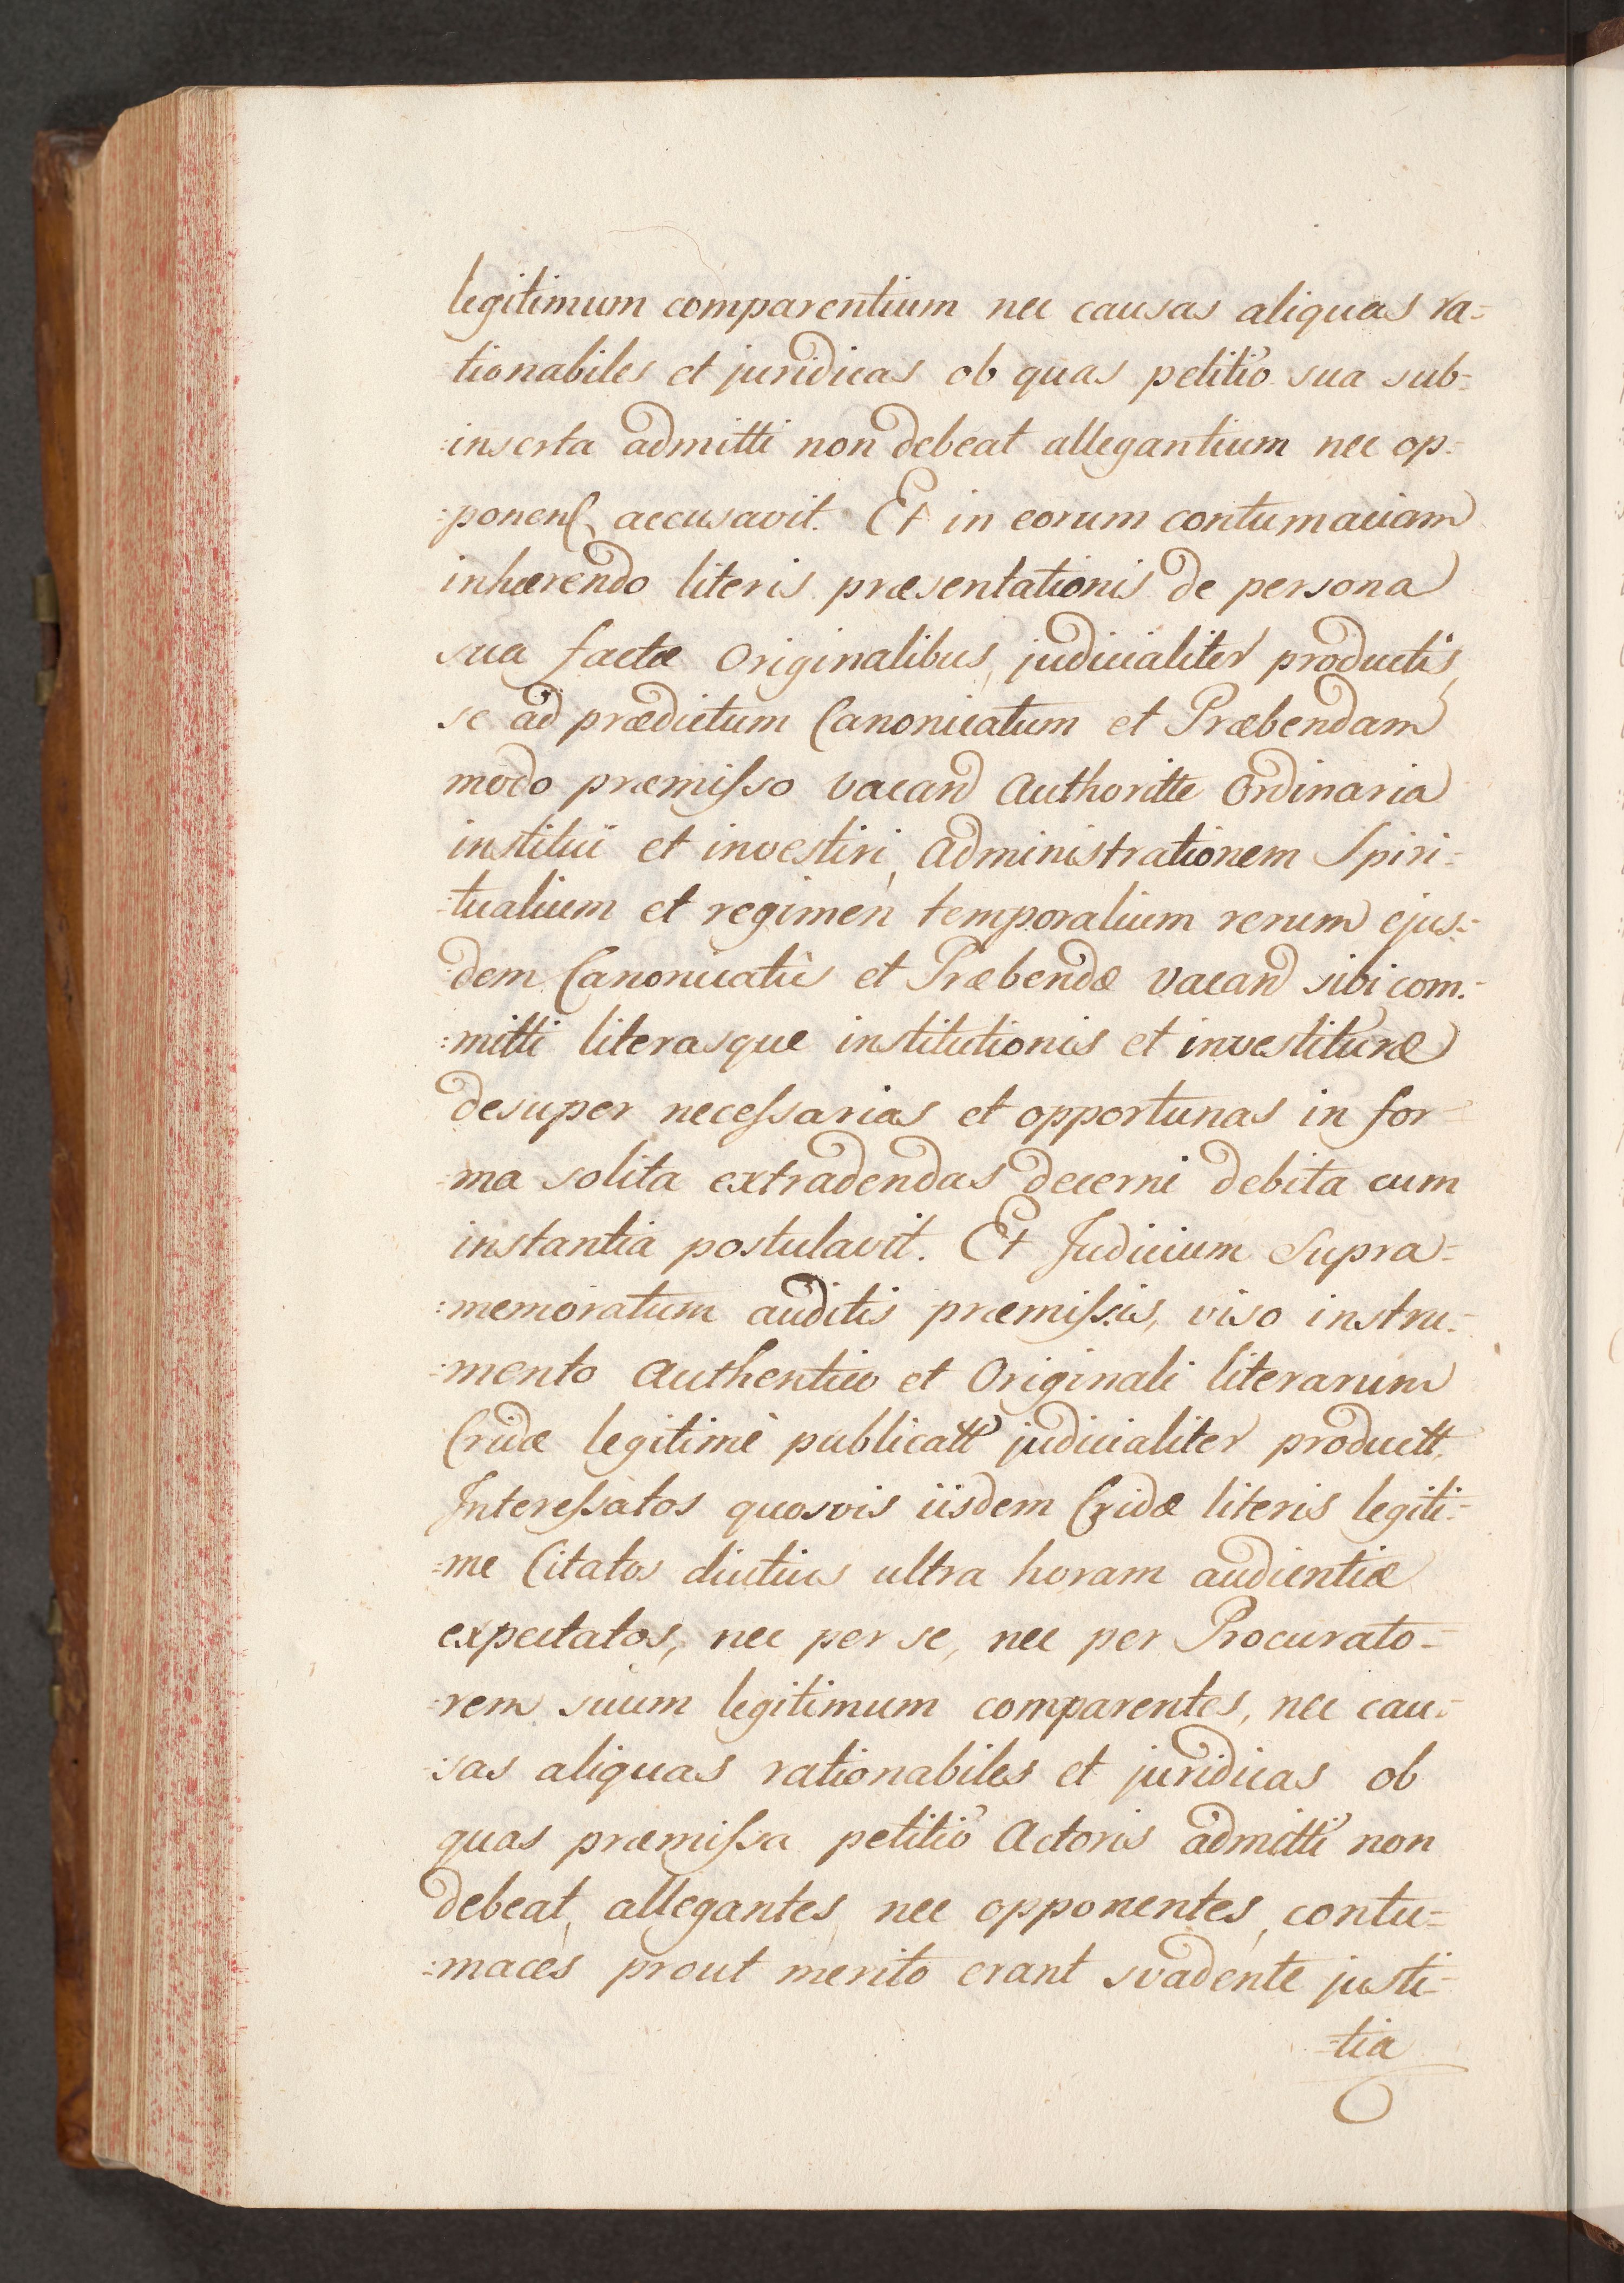 legitimum comparentium nec causas aliquas ra=
tionabiles et juridicas ob quas petitio sua sub=
=inserta admitti non debeat allegantium nec op=
=ponenſ accusavit. Et in eorum contumaciam
inhærendo literis præsentationis de persona
sua factæ Originalibus, judicialiter productis,
se ad prædictum Canonicatum et Præbendam
modo præmiſso vacand Authoritte Ordinaria
institui et investiri, Administrationem Spiri=
=tualium et regimen temporalium rerum ejus=
=dem Canonicatûs et Præbendæ vacand sibi com=
=mitti literasque institutionis et investituræ
desuper neceſsarias et opportunas in for=
=ma solita extradendas decerni debita cum
instantia postulavit. Et Judicium Supra=
=memoratum auditis præmiſsis, viso instru=
=mento Authentico et Originali literarum
Cridæ legitimè publicatt judicialiter productt,
Intereſsatos quosvis iisdem Cridæ literis legiti=
=me Citatos diutius ultra horam audientiæ
expectatos, nec per se, nec per Procurato=
=rem suum legitimum comparentes, nec cau=
=sas aliquas rationabiles et juridicas ob
quas præmiſsa petitio Actoris admitti non
debeat, allegantes, nec opponentes, contu=
=maces prout merito erant svadente justi=
=tia